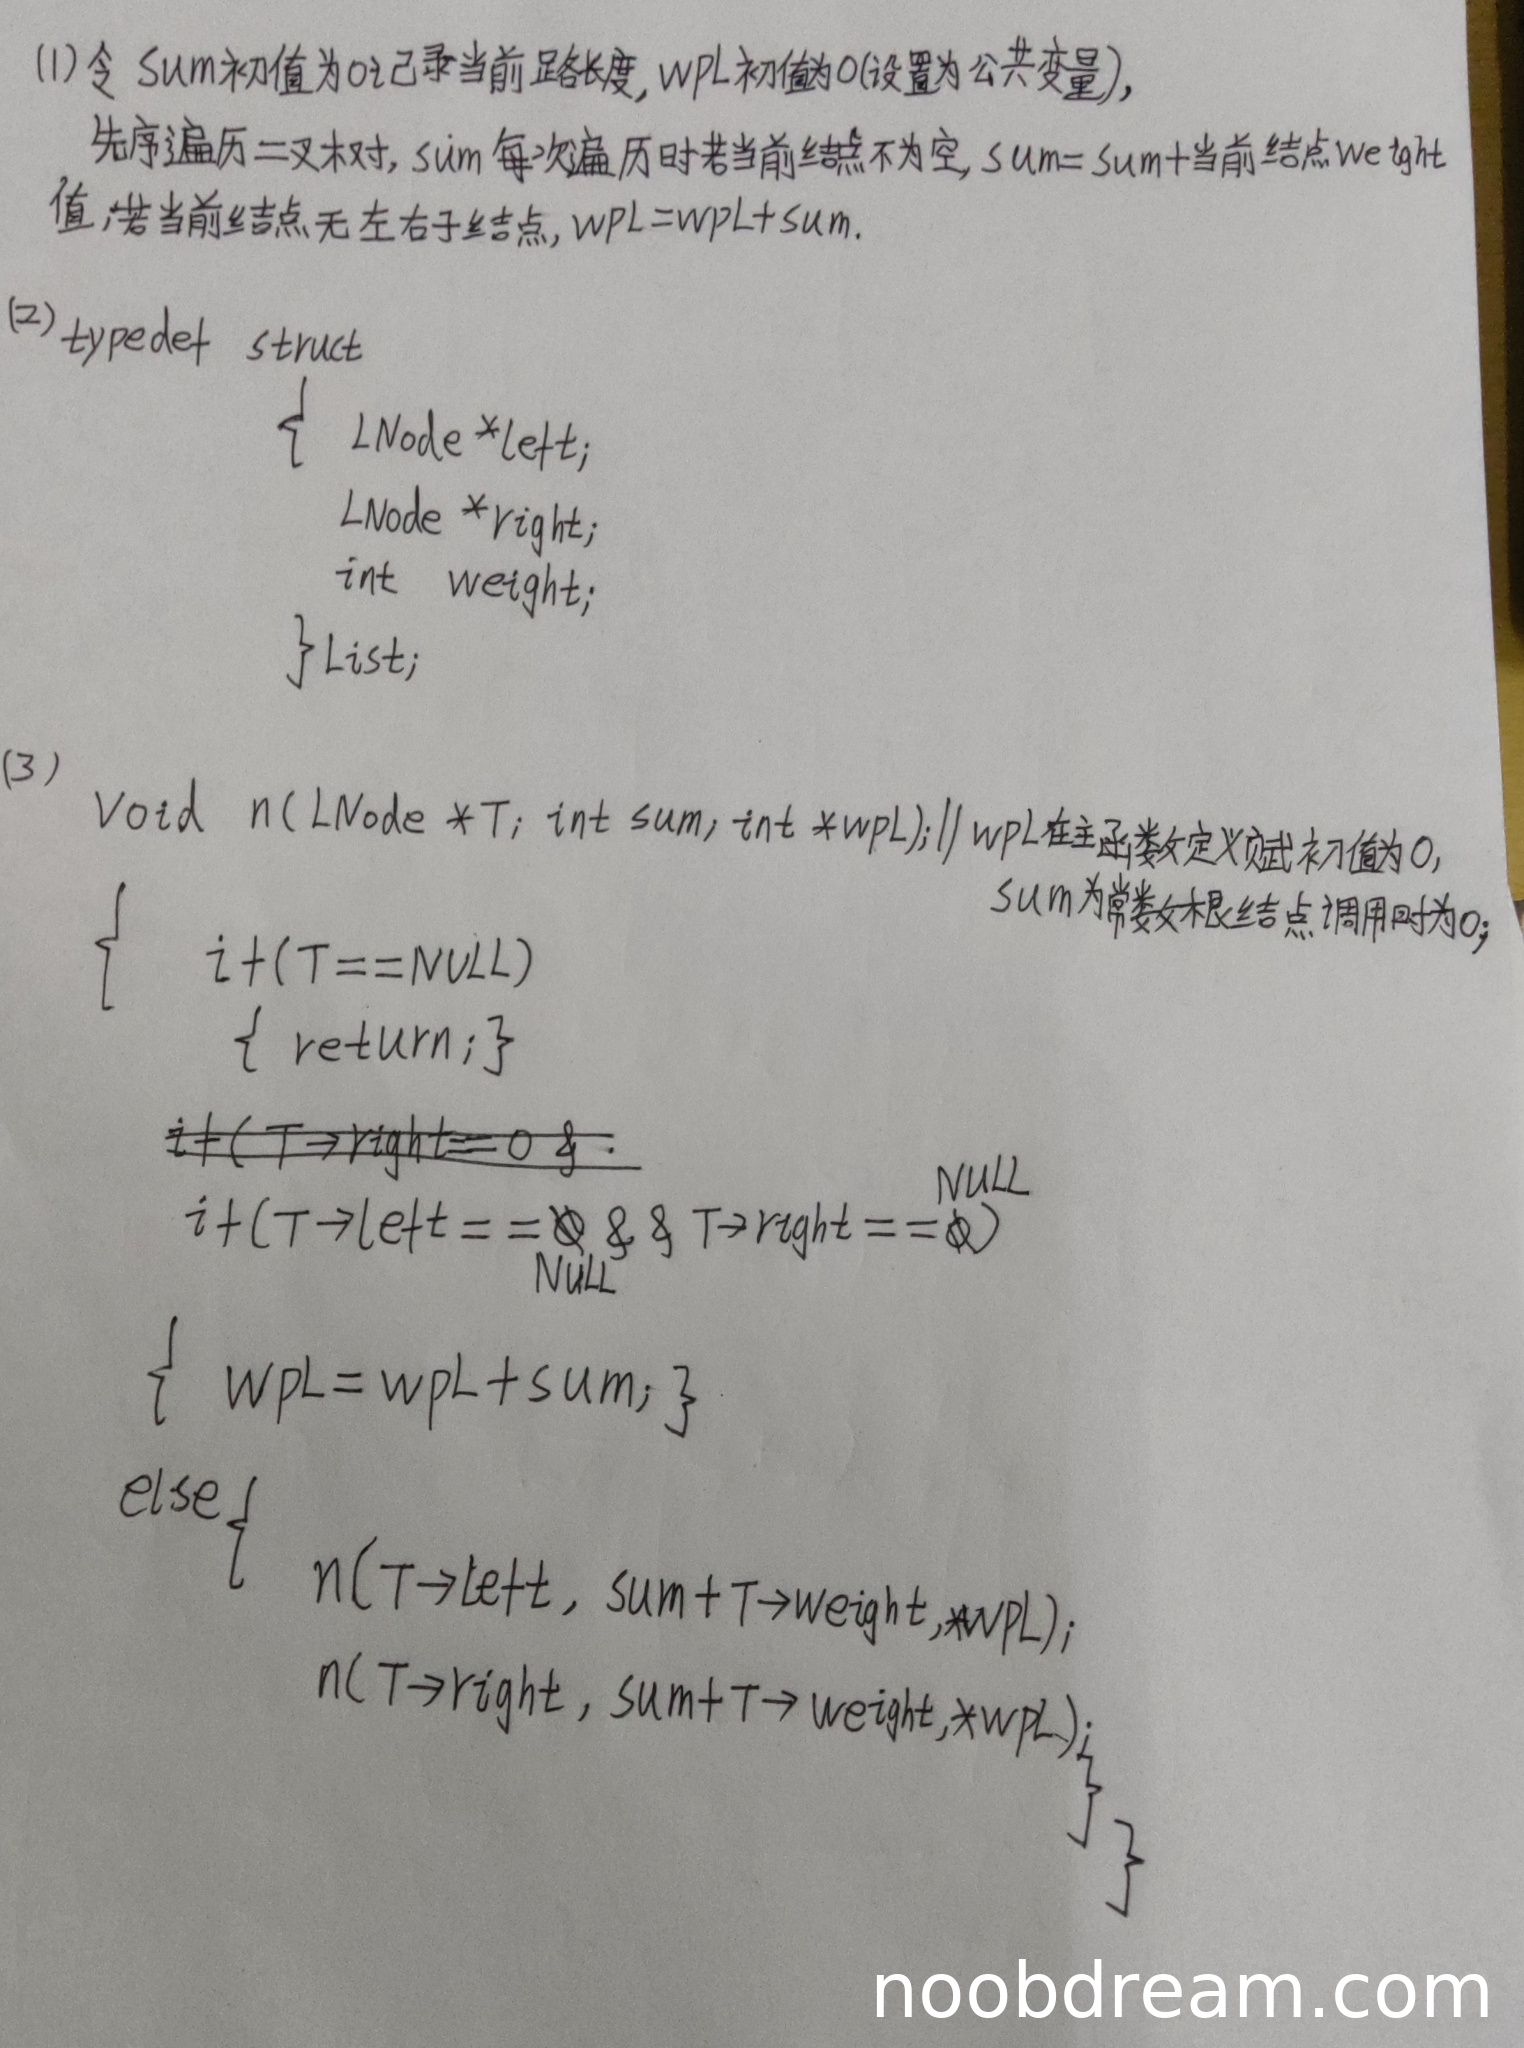 (1)令 sum初值为0记录当前路长度,wpL初值为0(设置为公共变量),
先序遍历二叉树时,sum每次遍历时若当前结点不为空,sum=sum+当前结点weight
值,若当前结点无左右子结点,wpL=wpL+sum.
(2) typedef struct
{ LNode *left;
LNode *right;
int weight;
}List;
(3)
Void n(LNode *T; int sum; int *wpL);//wpL在主函数定义赋初值为0,
sum为常数根结点调用时为0;
{ if(T==NULL)
{ return;}
if(T→right==0 &
NULL
if(T→left==0 && T→right==0)
NULL
{ wpL=wpL+sum;}
else{
n(T→left, sum+T→weight,*wpL);
n(T→right, sum+T→weight,*wpL);
}
}
noobdream.com